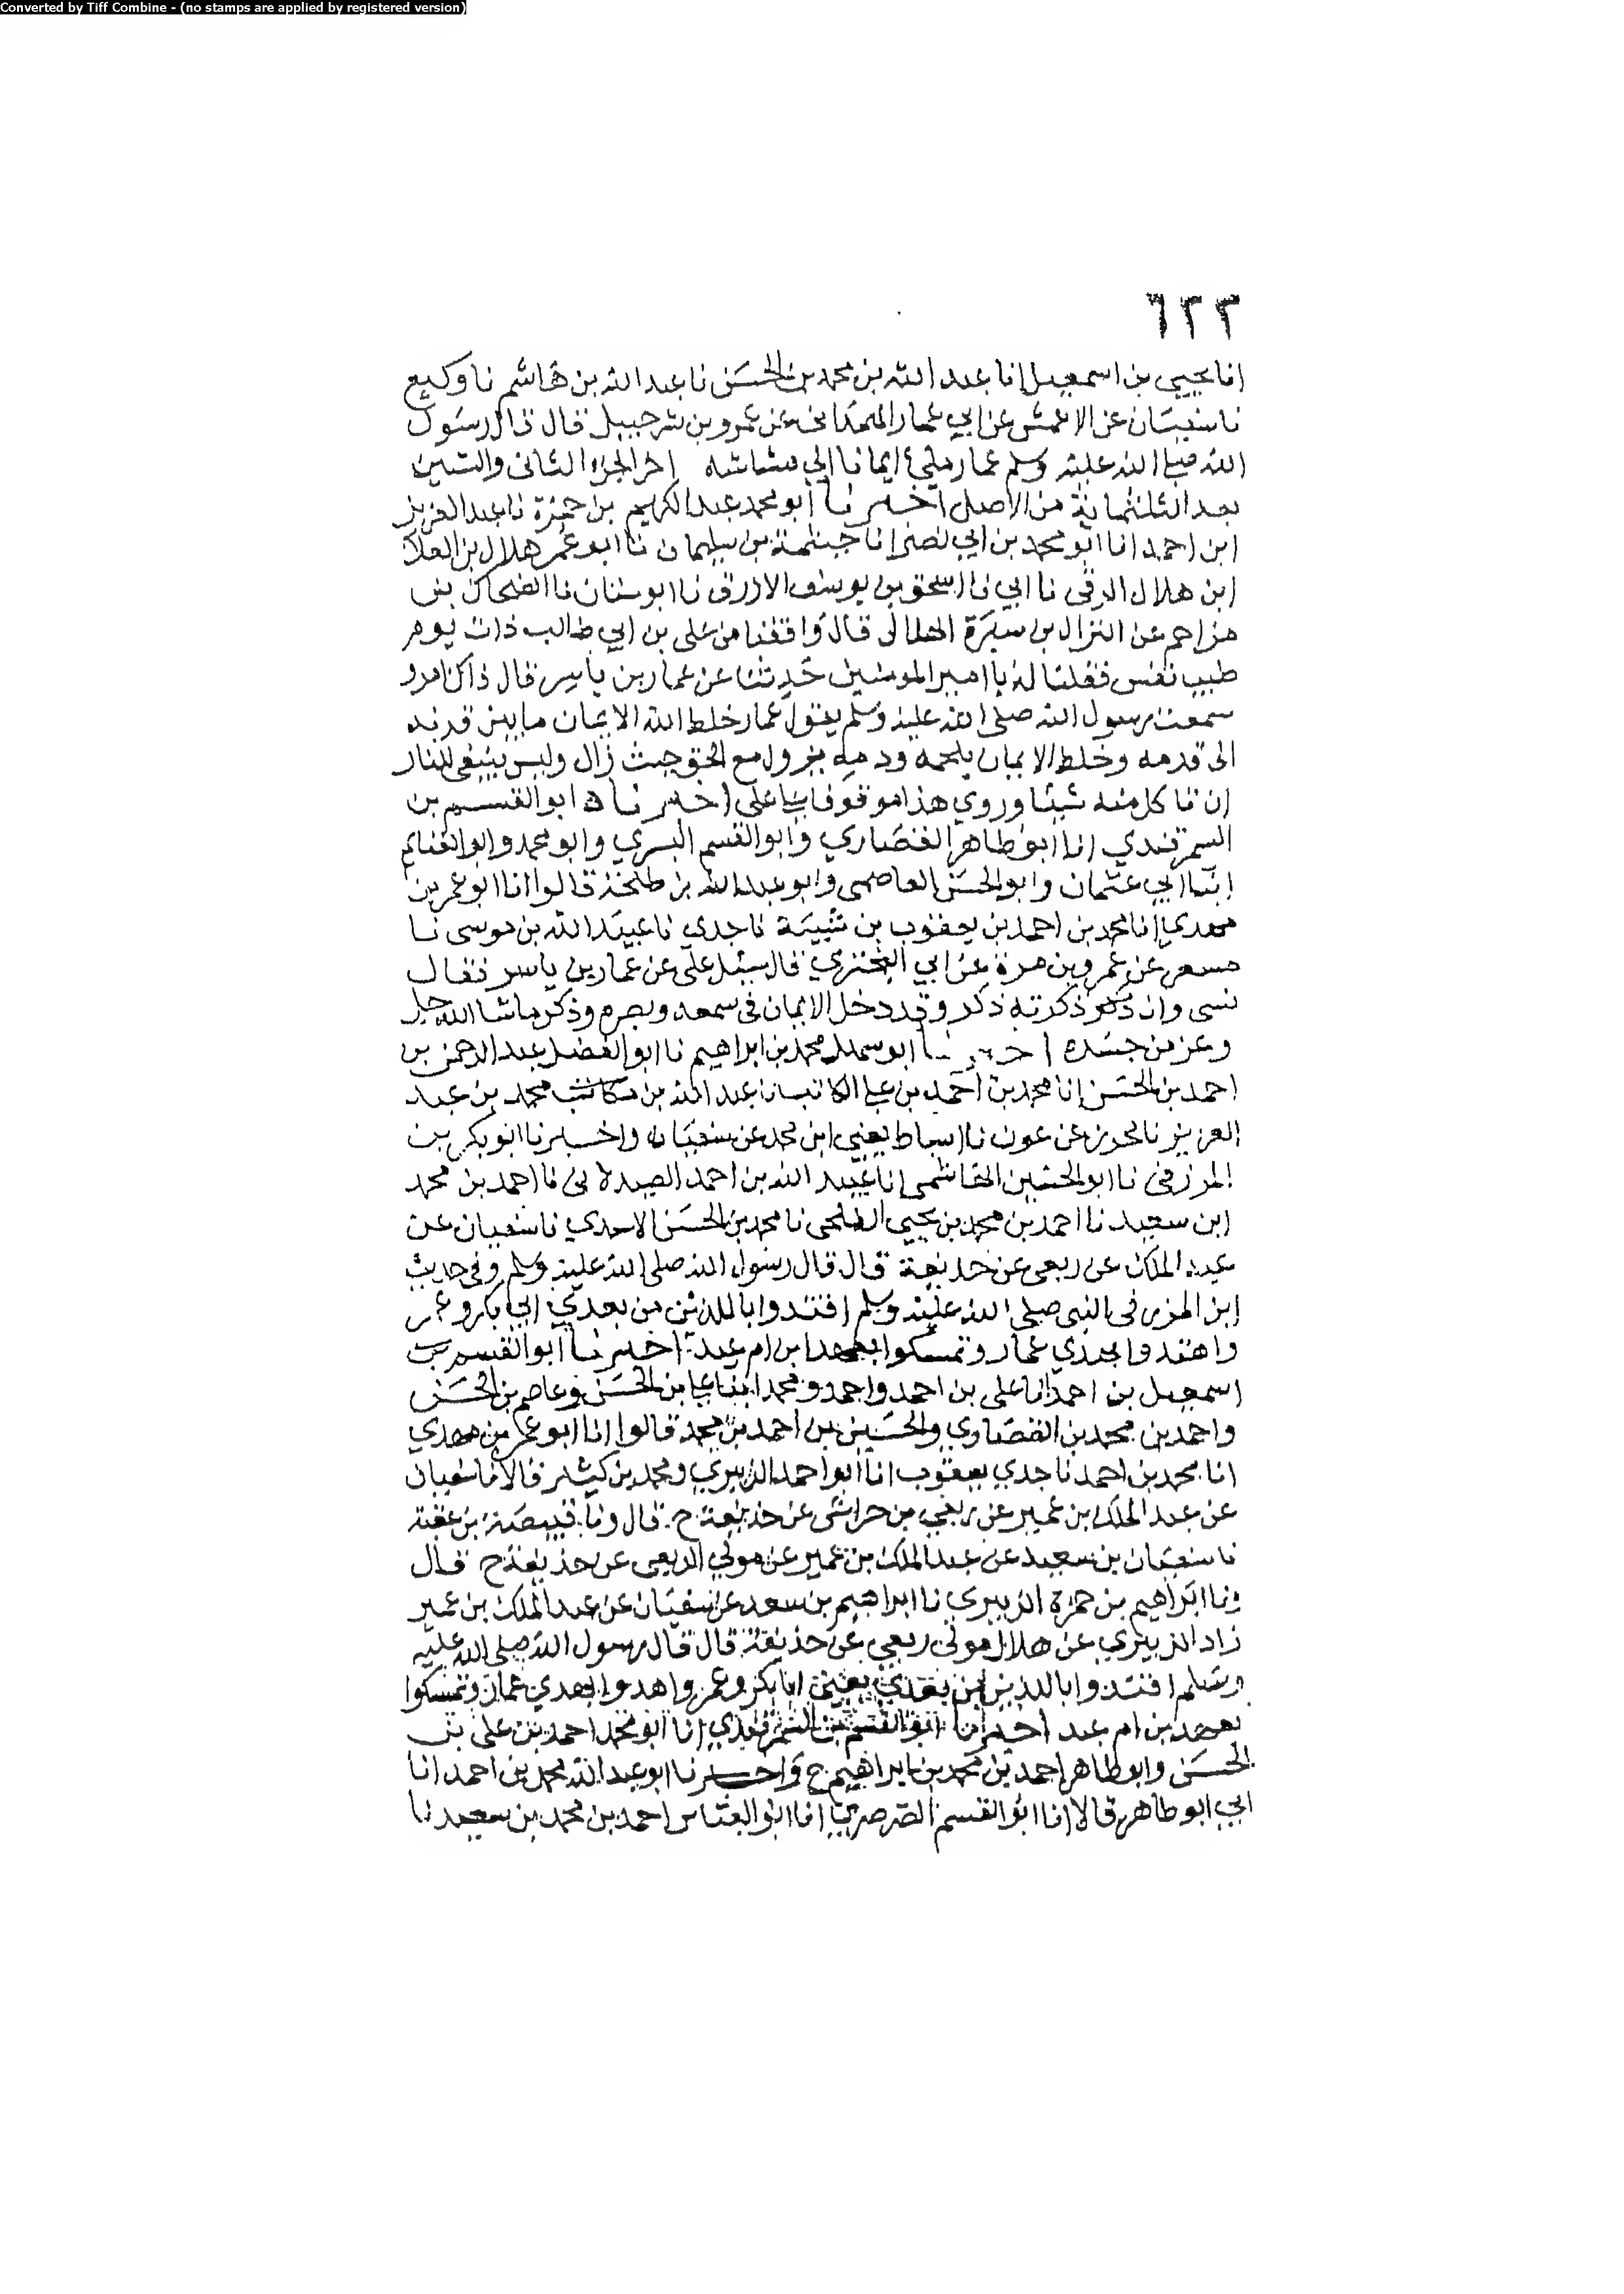 Converted by Tiff Combine - (no stamps are applied by registered version)
٦٢٣
انا يحيى بن اسمعيل انا عبد الله بن محمد بن الحسن نا عبد الله بن هاشم نا وكيع
نا سفيان عن الاعمش عن ابي عمار الهمداني عن عمرو بن شرحبيل قال قال رسول
الله صلى الله عليه وسلم عمار ملئ ايمانا الى مشاشه اخر الجزء الثاني والستين
بعد الثلثماية من الاصل اخبرنا ابو محمد عبد الكريم بن حمزة نا عبد العزيز
ابن احمد انا ابو محمد بن ابي نصر انا خيثمة بن سليمان نا ابو عمر هلال بن العلا
ابن هلال الرقى نا ابي نا اسحق بن يوسف الازرق نا ابو سنان نا الضحاك بن
مزاحم عن النزال بن سبرة الهلالى قال وافقنا من على بن ابي طالب ذات يوم
طيب نفس فقلنا له يا امير المومنين حدثنا عن عمار بن ياسر قال ذاك امرو
سمعت رسول الله صلى الله عليه وسلم يقول عمار خلط الله الايمان ما بين قرنه
الى قدمه وخلط الايمان بلحمه ودمه يزول مع الحق حيث زال وليس ينبغي للنار
ان تاكل منه شيئا وروي هذا موقوفا على اخبرناه ابو القسم بن
السمرقندي انا ابو طاهر القصاري وابو القسم البسري وابو محمد وابو الغنايم
ابنا ابي عثمان وابو الحسن العاصمي وابو عبد الله بن طلحة قالوا انا ابو عمر بن
مهدي انا محمد بن احمد بن يعقوب بن شيبة نا جدي نا عبيد الله بن موسى نا
مسعر عن عمرو بن مرة عن ابي البختري قال سيل على عن عمار بن ياسر فقال
نسى وان ذكرته ذكر وقد دخل الايمان في سمعه وبصره وذكر ما شا الله جل
وعز من جسده اخبرنا ابو سعد محمد بن ابراهيم نا ابو الفضل عبد الرحمن بن
احمد بن الحسن انا محمد بن احمد بن على الكاتب نا عبد الله بن محمد بن عبد
العزيز نا محرز عن عون نا اسباط يعني ابن محمد عن سفيان واخبرنا ابو بكر بن
المزرفى نا ابو الحسين الهاشمى انا عبيد الله بن احمد الصيدلاني نا احمد بن محمد
ابن سعيد نا احمد بن محمد بن يحيى الطلحى نا محمد بن الحسن الاسدي نا سفيان عن
عبد الملك عن ربعى عن حذيفة قال قال رسول الله صلى الله عليه وسلم وفى حديث
ابن المزرفى النبى صلى الله عليه وسلم اقتدوا باللذين من بعدي ابي بكر وعمر
واهتدوا بهدي عمار وتمسكوا بعهد ابن ام عبد اخبرنا ابو القسم بن
اسمعيل بن احمد انا على بن احمد واحمد ومحمد ابنا على بن الحسن وعاصم بن الحسن
واحمد بن محمد بن القصاري والحسين بن احمد بن محمد قالوا انا ابو عمر بن مهدي
انا محمد بن احمد نا جدي يعقوب انا ابو احمد الزبيري ومحمد بن كثير قالا نا سفيان
عن عبد الملك بن عمير عن ربعي بن حراش عن حذيفة ح قال ونا قبيصة بن عقبة
نا سفيان بن سعيد عن عبد الملك بن عمير عن مولي الربعى عن حذيفة ح قال
ونا ابراهيم بن حمزة الزبيري نا ابراهيم بن سعد عن سفيان عن عبد الملك بن عمير
زاد الزبيري عن هلال مولى ربعي عن حذيفة قال قال رسول الله صلى الله عليه
وسلم اقتدوا باللذين من بعدي يعنى ابا بكر وعمر واهدوا بهدي عمار وتمسكوا
بعهد بن ام عبد اخبرنا ابو القسم بن السمرقندي انا ابو محمد احمد بن على بن
الحسن وابو طاهر احمد بن محمد بن ابراهيم ح واخبرنا ابو عبد الله محمد بن احمد انا
ابي ابو طاهر قالا انا ابو القسم الصرصري انا ابو العباس احمد بن محمد بن سعيد نا